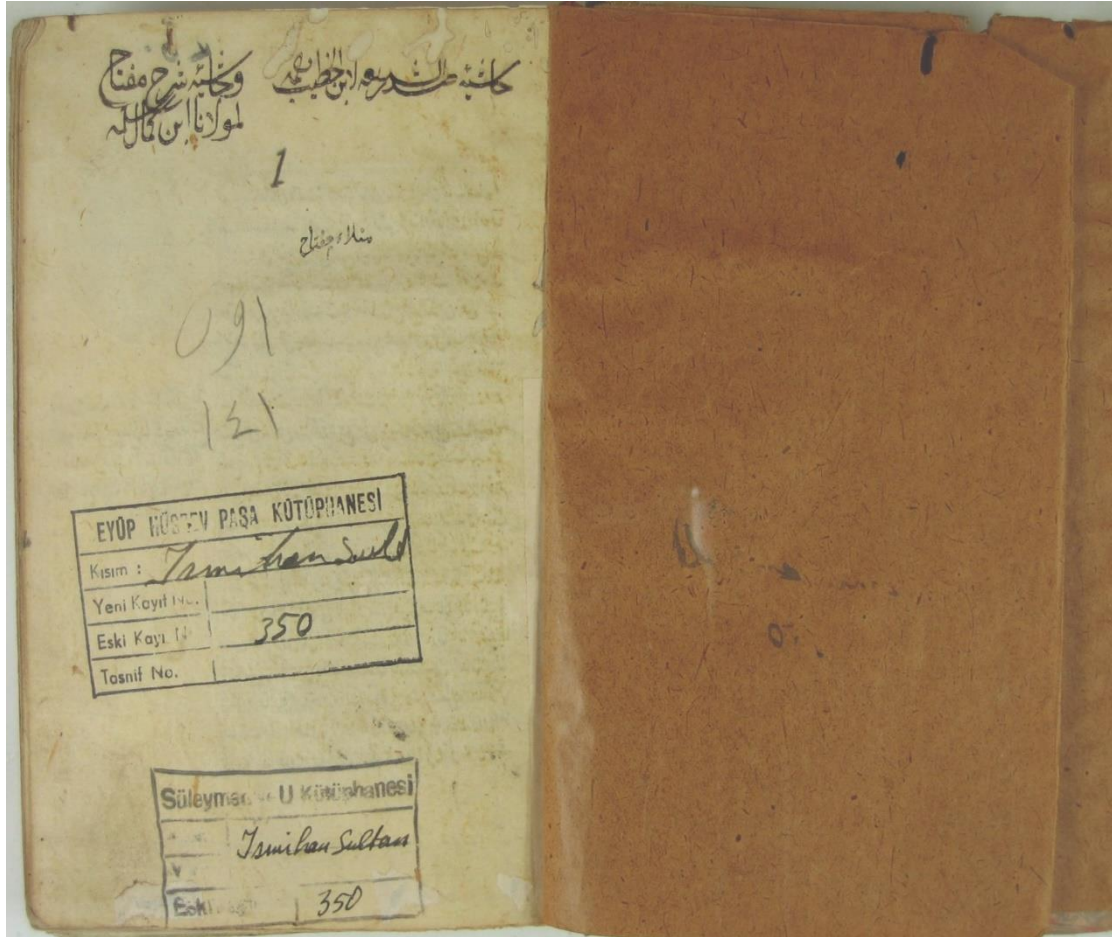 حاشية صدر الشريعة لابن الخطيب
وحاشية شرح مفتاح
لمولانا ابن كمال
1
مفتاح
091
١٤١
EYÜP HÜSREV PAŞA KÜTÜPHANESİ
Kısım : Ismihan Sult
Yeni Kayıt No.
Eski Kayı N 350
Tasnif No.
Süleyman U Kütüphanesi
Ismihan Sultan
V
Eski 350